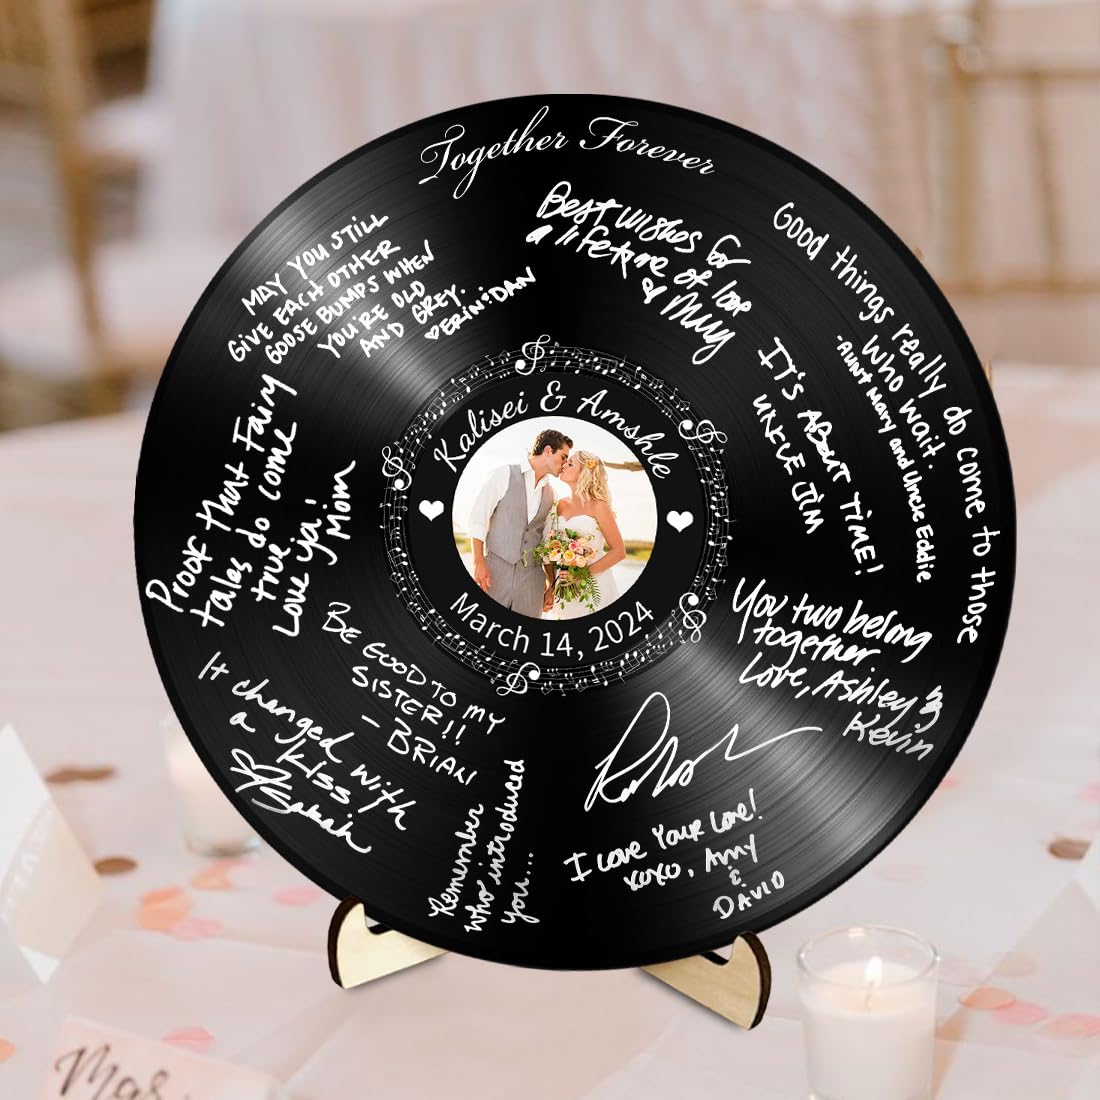 Together Forever
MAY YOU STILL
GIVE EACH OTHER
GOOSE BUMPS WHEN
YOU'RE OLD
AND GREY.
ERIN DAN
Best wishes for
a lifetime of love
Good things really do come to those
who wait.
-AUNT Mary and Uncle Eddie
IT'S ABOUT TIME!
UNCLE JIM
Proof that Fairy
tales do come
true
Love ya!
Mom
Kalisei & Amshle
March 14, 2024
BE GOOD TO MY
SISTER!!
- BRIAN
You two belong
together.
Love, Ashley &
Kevin
It changed with
a kiss
Sarah
Remember
who introduced
you...
I Love Your Love!
xoxo, Amy
&
DAVID